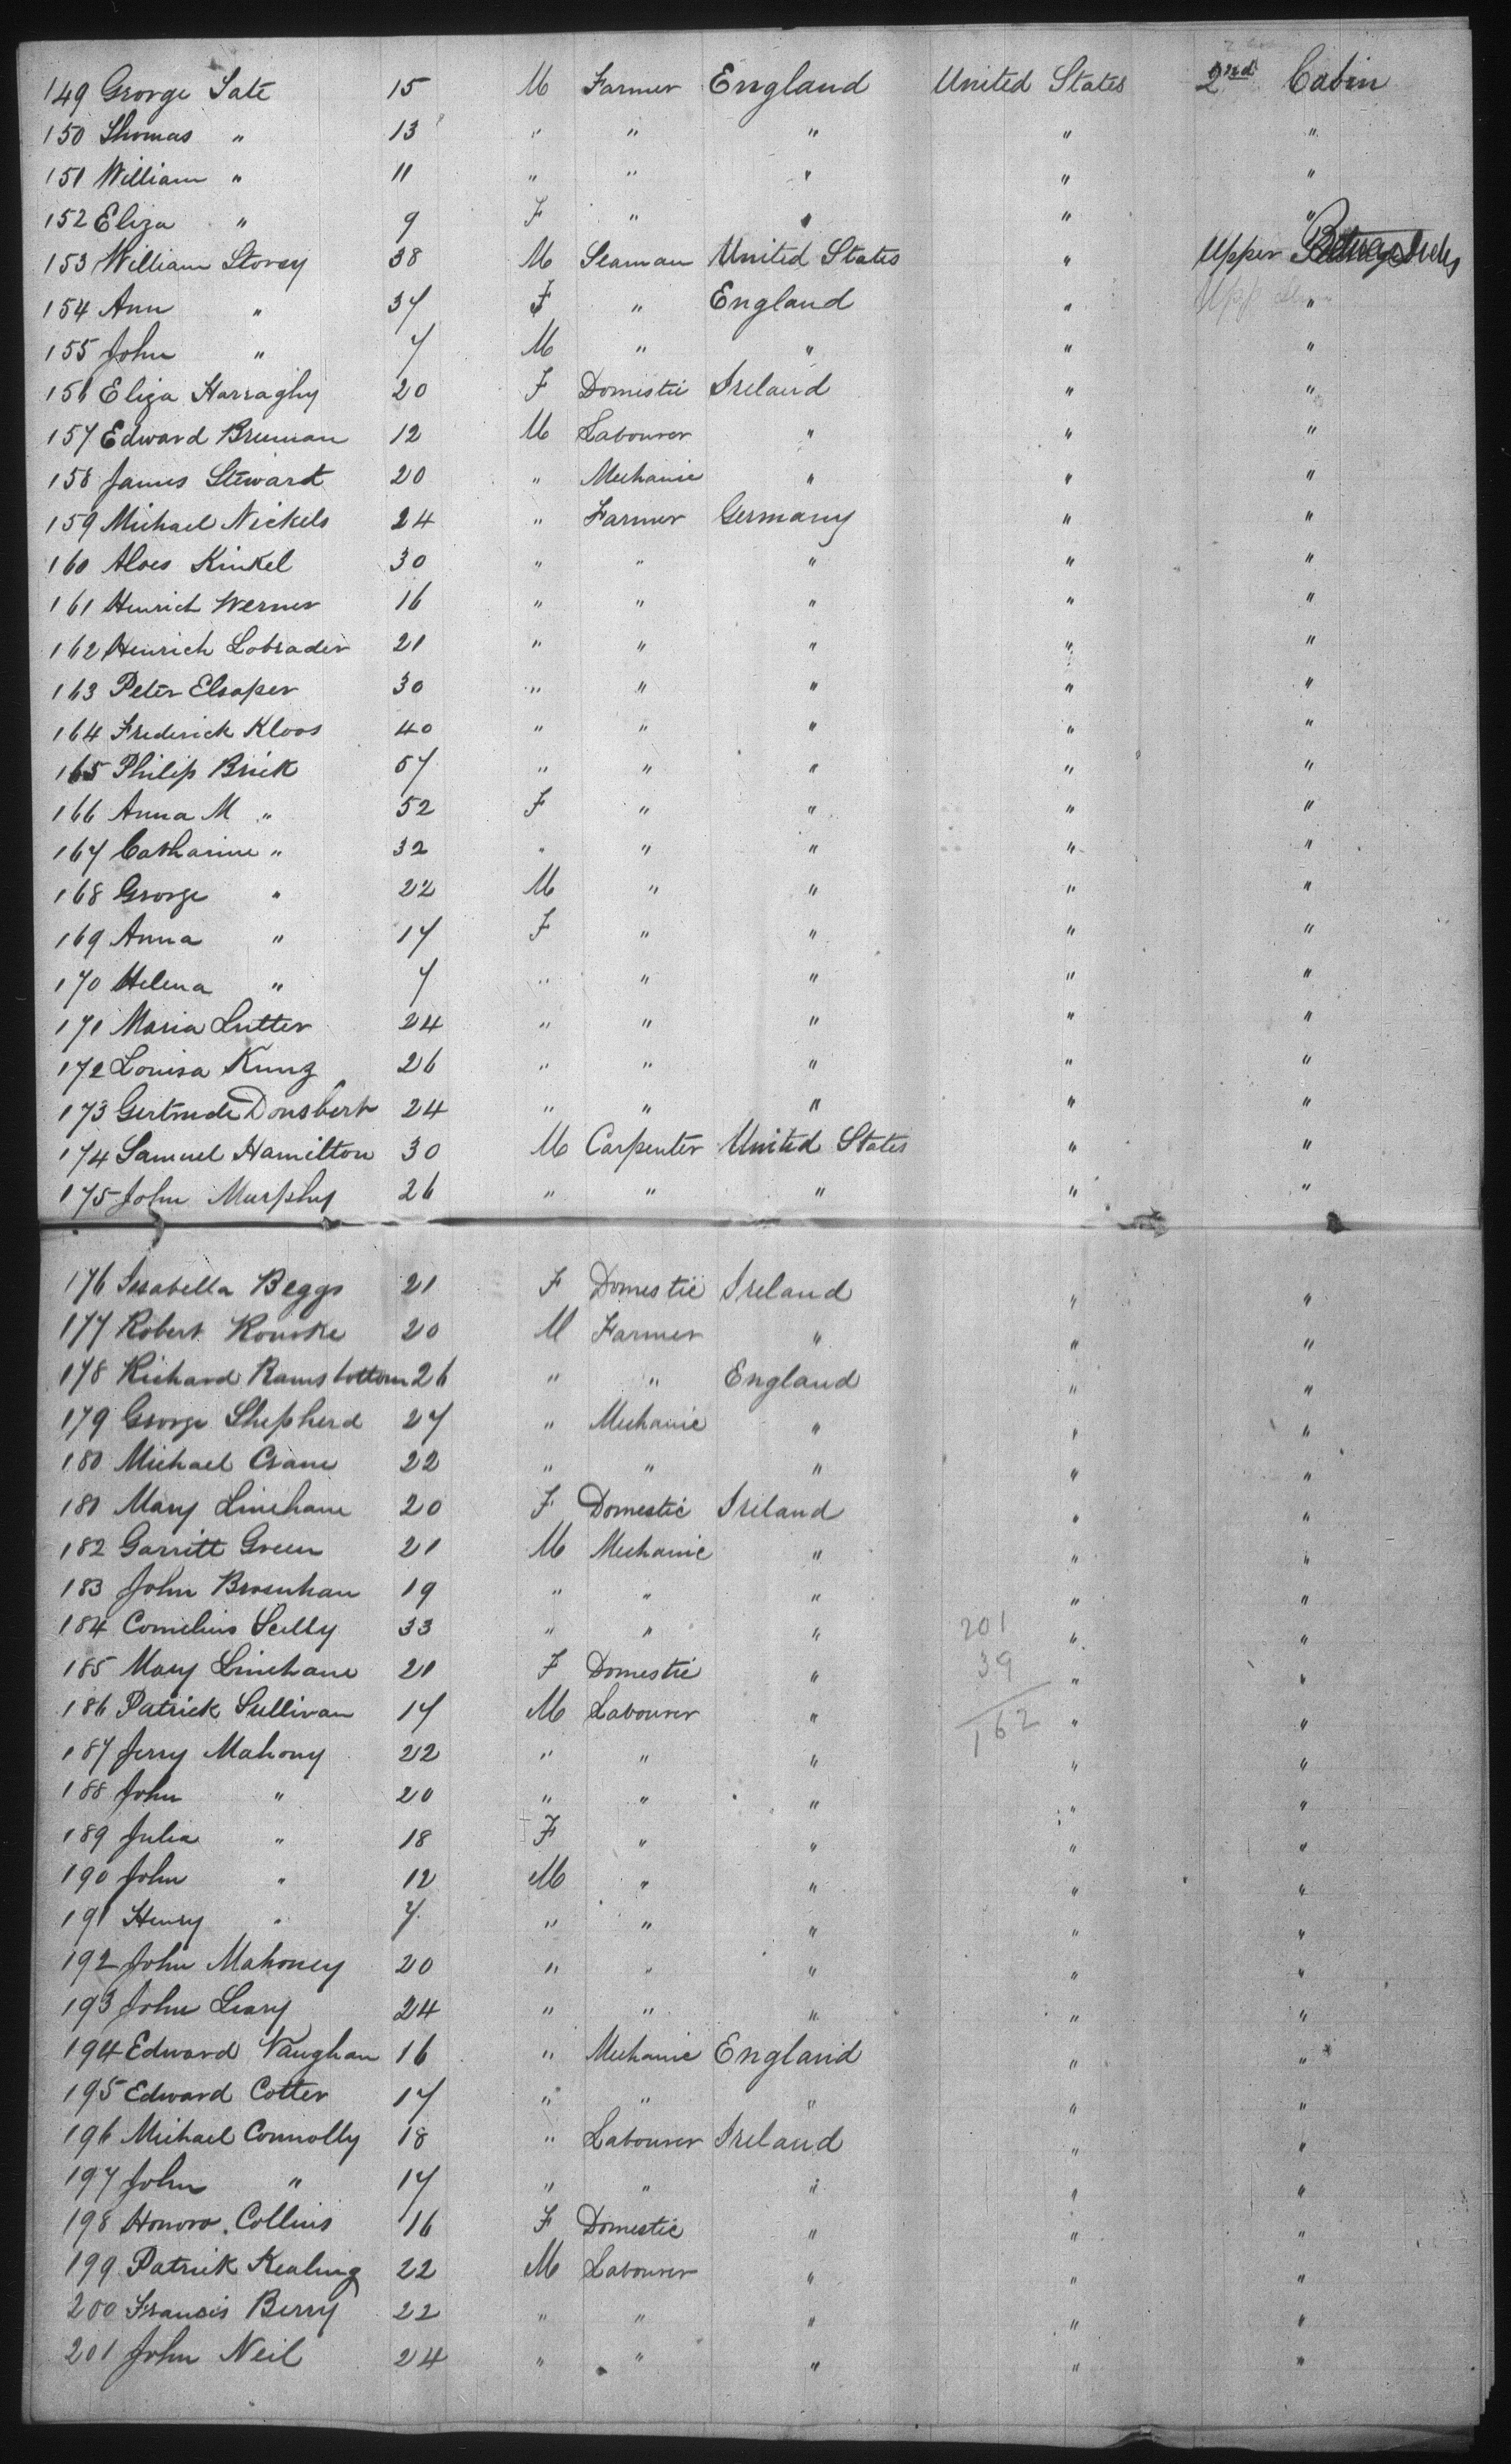 149 George Tate 15 M Farmer England United States 2nd Cabin
150 Thomas " 13 " " " " "
151 William " 11 " " " " "
152 Eliza " 9 F " " " "
153 William Storey 38 M Seaman United States " Upper Decks
154 Ann " 37 F " England " "
155 John " 7 M " " " "
156 Eliza Harraghy 20 F Domestic Ireland " "
157 Edward Brennan 12 M Labourer " " "
158 James Steward 20 " Mechanic " " "
159 Michael Nickels 24 " Farmer Germany " "
160 Aloes Kinkel 30 " " " " "
161 Henrich Werner 16 " " " " "
162 Henrich Lobrader 21 " " " " "
163 Peter Elsaper 30 " " " " "
164 Frederick Kloos 40 " " " " "
165 Philip Brick 57 " " " " "
166 Anna M " 52 F " " " "
167 Catharine " 32 " " " " "
168 George " 22 M " " " "
169 Anna " 17 F " " " "
170 Helena " 7 " " " " "
171 Maria Lutter 24 " " " " "
172 Louisa Kunz 26 " " " " "
173 Gertrude Donsbert 24 " " " " "
174 Samuel Hamilton 30 M Carpenter United States " "
175 John Murphy 26 " " " " "
176 Isabella Beggs 21 F Domestic Ireland " "
177 Robert Rourke 20 M Farmer " " "
178 Richard Ramsbottom 26 " " England " "
179 George Shepherd 27 " Mechanic " " "
180 Michael Crane 22 " " " " "
181 Mary Linehane 20 F Domestic Ireland " "
182 Garritt Green 21 M Mechanic " " "
183 John Brosnhan 19 " " " " "
184 Cornelius Scilly 33 " " " 201 " "
185 Mary Linehane 21 F Domestic " 39 " "
186 Patrick Sullivan 17 M Labourer " 162 " "
187 Jerry Mahony 22 " " " " "
188 John " 20 " " " " "
189 Julia " 18 F " " " "
190 John " 12 M " " " "
191 Henry " 7 " " " " "
192 John Mahoney 20 " " " " "
193 John Leary 24 " " " " "
194 Edward Vaughan 16 " Mechanic England " "
195 Edward Cotter 17 " " " " "
196 Michael Connolly 18 " Labourer Ireland " "
197 John " 17 " " " " "
198 Honora Collins 16 F Domestic " " "
199 Patrick Kealing 22 M Labourer " " "
200 Francis Berry 22 " " " " "
201 John Neil 24 " " " " "